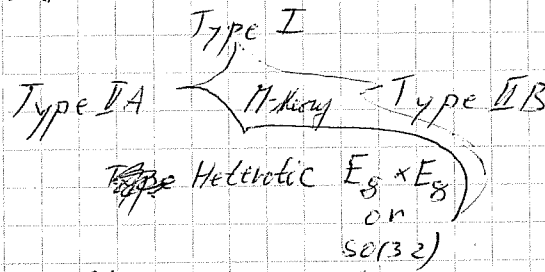 Type I
Type IIA M-theory Type IIB
Heterotic E8 × E8
or
SO(32)